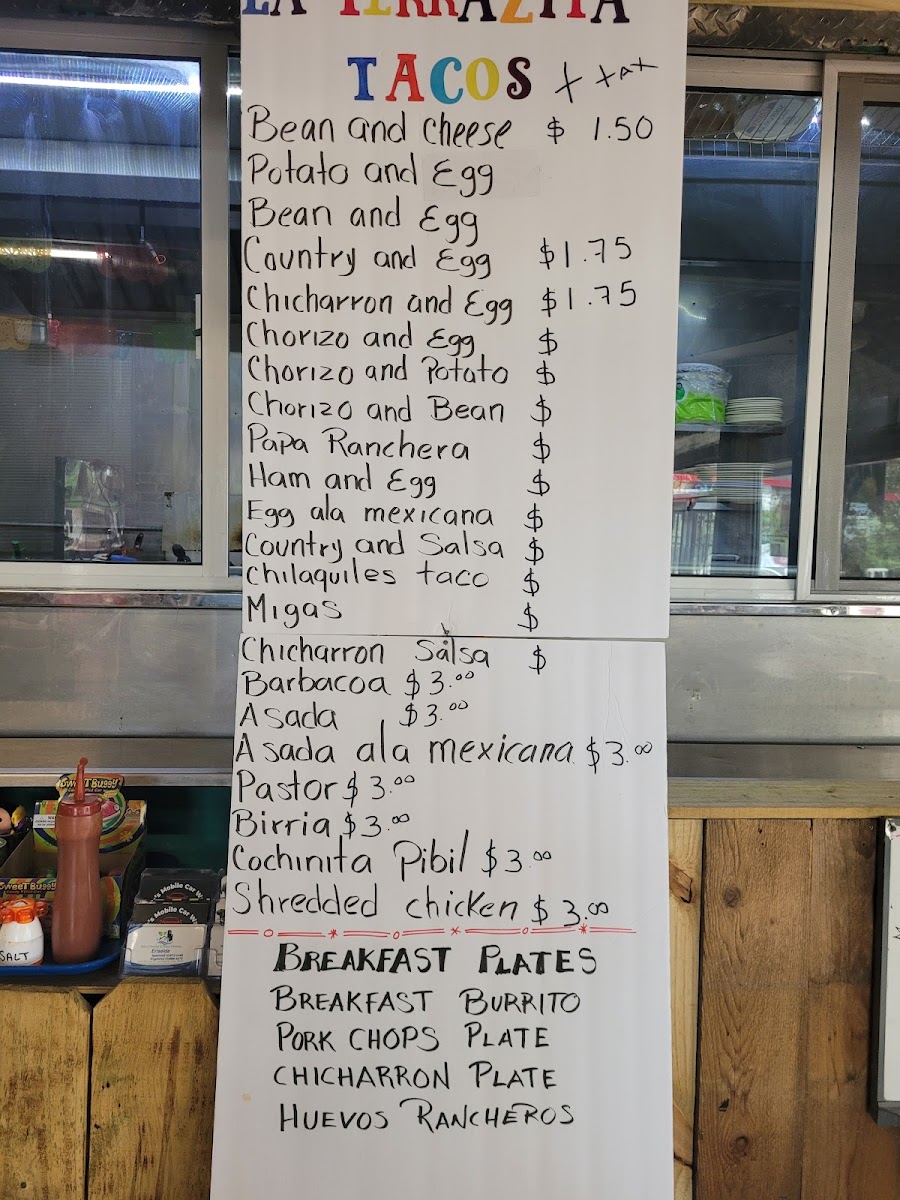 LA TERRAZITA
TACOS + tax
Bean and cheese $ 1.50
Potato and Egg
Bean and Egg
Country and Egg $1.75
Chicharron and Egg $1.75
Chorizo and Egg $
Chorizo and Potato $
Chorizo and Bean $
Papa Ranchera $
Ham and Egg $
Egg ala mexicana $
Country and Salsa $
Chilaquiles taco $
Migas $
Chicharron Salsa $
Barbacoa $3.00
Asada $3.00
Asada ala mexicana $3.00
Pastor $3.00
Birria $3.00
Cochinita Pibil $3.00
Shredded chicken $3.00
BREAKFAST PLATES
BREAKFAST BURRITO
PORK CHOPS PLATE
CHICHARRON PLATE
HUEVOS RANCHEROS
SweeT Buggy
SweeT Buggy
SALT
's Mobile Car W
's Mobile Car W